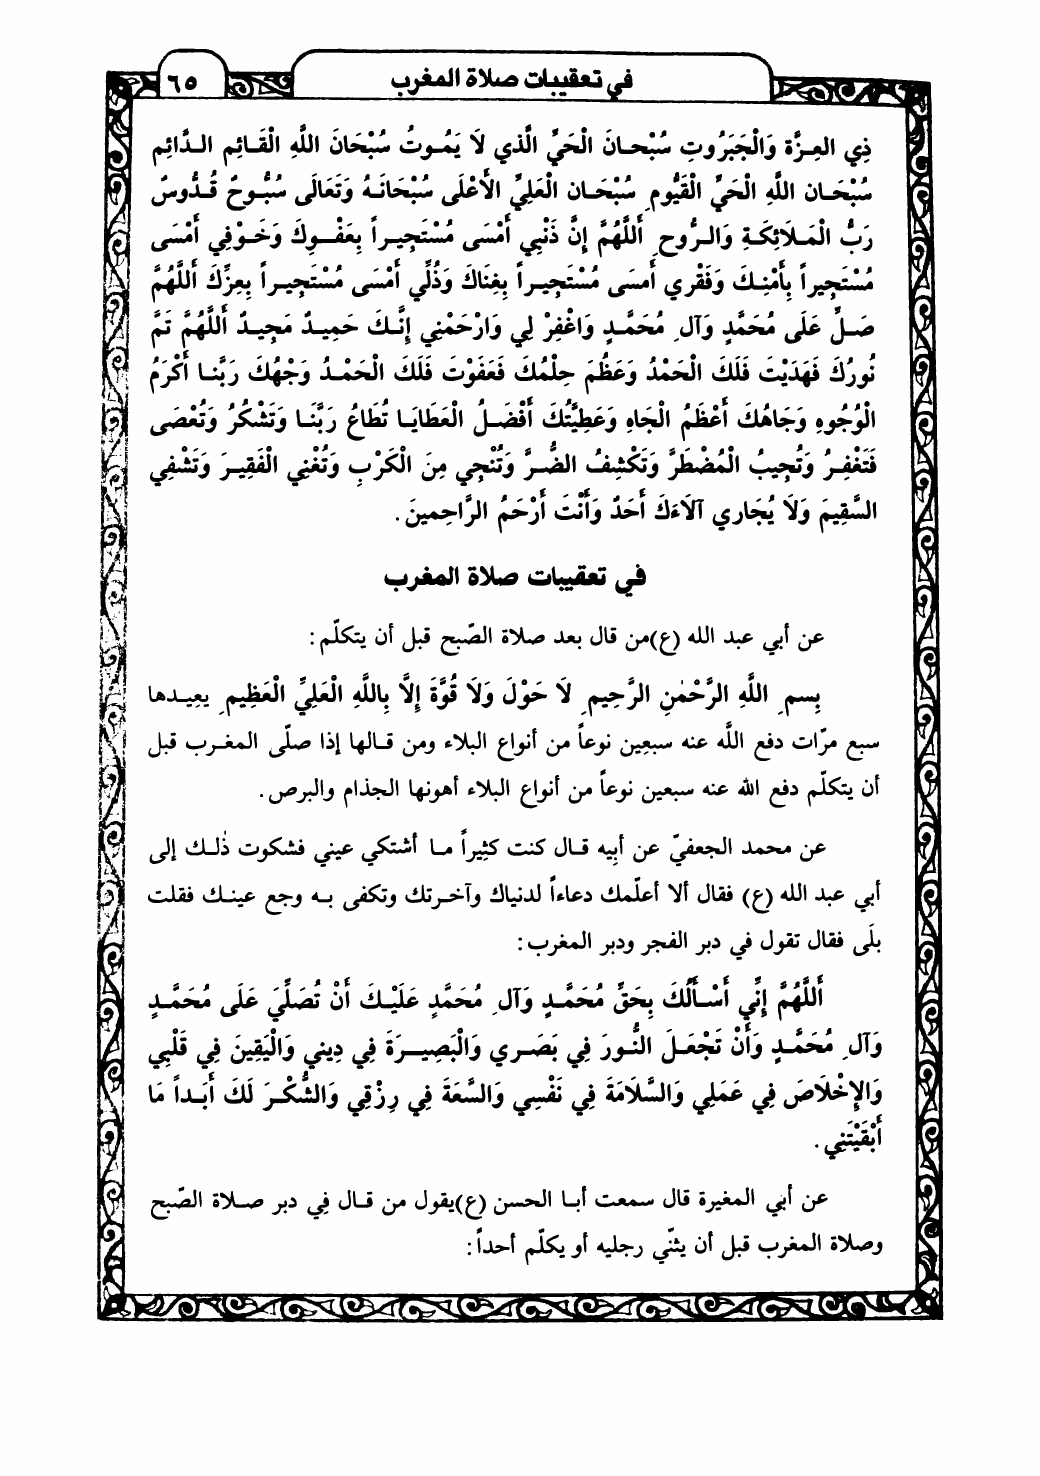 في تعقيبات صلاة المغرب
٦٥
ذِي العِزَّة وَالْجَبَرُوتِ سُبْحانَ الْحَيِّ الَّذي لاَ يَمُوتُ سُبْحَانَ اللَّهِ الْقَائِمِ الدَّائِمِ
سُبْحَان اللَّهِ الْحَيِّ الْقَيُّومِ سُبْحَان الْعَلِيِّ الأَعْلَى سُبْحَانَهُ وَتَعَالَى سُبُّوحٌ قُدُّوسٌ
رَبُّ الْمَلَائِكَةِ وَالرُّوحِ أَللَّهُمَّ إِنَّ ذَنْبِي أَمْسَى مُسْتَجِيراً بِعَفْوِكَ وَخَوْفِي أَمْسَى
مُسْتَجِيراً بِأَمْنِكَ وَفَقْرِي أَمسَى مُسْتَجِيراً بِغِنَاكَ وَذُلِّي أَمْسَى مُسْتَجِيراً بِعِزِّكَ أَللَّهُمَّ
صَلِّ عَلَى مُحَمَّدٍ وَآلِ مُحَمَّدٍ وَاغْفِرْ لِي وَارْحَمْنِي إِنَّكَ حَمِيدٌ مَجِيدٌ أَللَّهُمَّ تَمَّ
نُورُكَ فَهَدَيْتَ فَلَكَ الْحَمْدُ وَعَظُمَ حِلْمُكَ فَعَفَوْتَ فَلَكَ الْحَمْدُ وَجْهُكَ رَبَّنا أَكْرَمُ
الْوُجُوهِ وَجَاهُكَ أَعْظَمُ الْجَاهِ وَعَطِيَّتُكَ أَفْضَلُ الْعَطَايَا تُطَاعُ رَبَّنَا وَتَشْكُرُ وَتُعْصَى
فَتَغْفِرُ وَتُجِيبُ الْمُضْطَرَّ وَتَكْشِفُ الضُّرَّ وَتُنْجِي مِنَ الْكَرْبِ وَتُغْنِي الْفَقِيرَ وَتَشْفِي
السَّقِيمَ وَلَا يُجَارِي آلَاءَكَ أَحَدٌ وَأَنْتَ أَرْحَمُ الرَّاحِمينَ.
في تعقيبات صلاة المغرب
عن أبي عبد الله (ع)من قال بعد صلاة الصّبح قبل أن يتكلّم:
بِسمِ اللَّهِ الرَّحْمٰنِ الرَّحِيمِ لَا حَوْلَ وَلَا قُوَّةَ إِلَّا بِاللَّهِ الْعَلِيِّ الْعَظِيمِ يعِيدها
سبع مرّات دفع اللَّه عنه سبعِين نوعاً من أنواع البلاء ومن قالها إذا صلّى المغرب قبل
أن يتكلّم دفع الله عنه سبعين نوعاً من أنواع البلاء أهونها الجذام والبرص.
عن محمد الجعفيّ عن أبِيه قال كنت كثِيراً ما أشتكي عيني فشكوت ذٰلك إلى
أبي عبد الله (ع) فقال ألا أعلّمك دعاءاً لدنياك وآخرتك وتكفى به وجع عينك فقلت
بلَى فقال تقول في دبر الفجر ودبر المغرب:
أَللَّهُمَّ إِنِّي أَسْأَلُكَ بِحَقِّ مُحَمَّدٍ وَآلِ مُحَمَّدٍ عَلَيْكَ أَنْ تُصَلِّيَ عَلَى مُحَمَّدٍ
وَآلِ مُحَمَّدٍ وَأَنْ تَجْعَلَ النُّورَ فِي بَصَرِي وَالْبَصِيرَةَ فِي دِيني وَالْيَقِينَ فِي قَلْبِي
وَالإِخْلَاصَ فِي عَمَلِي وَالسَّلَامَةَ فِي نَفْسِي وَالسَّعَةَ فِي رِزْقِي وَالشُّكْرَ لَكَ أَبَداً مَا
أَبْقَيْتَنِي.
عن أبي المغيرة قال سمعت أبا الحسن (ع)يقول من قال فِي دبر صلاة الصّبح
وصلاة المغرب قبل أن يثنّي رجليه أو يكلّم أحداً: